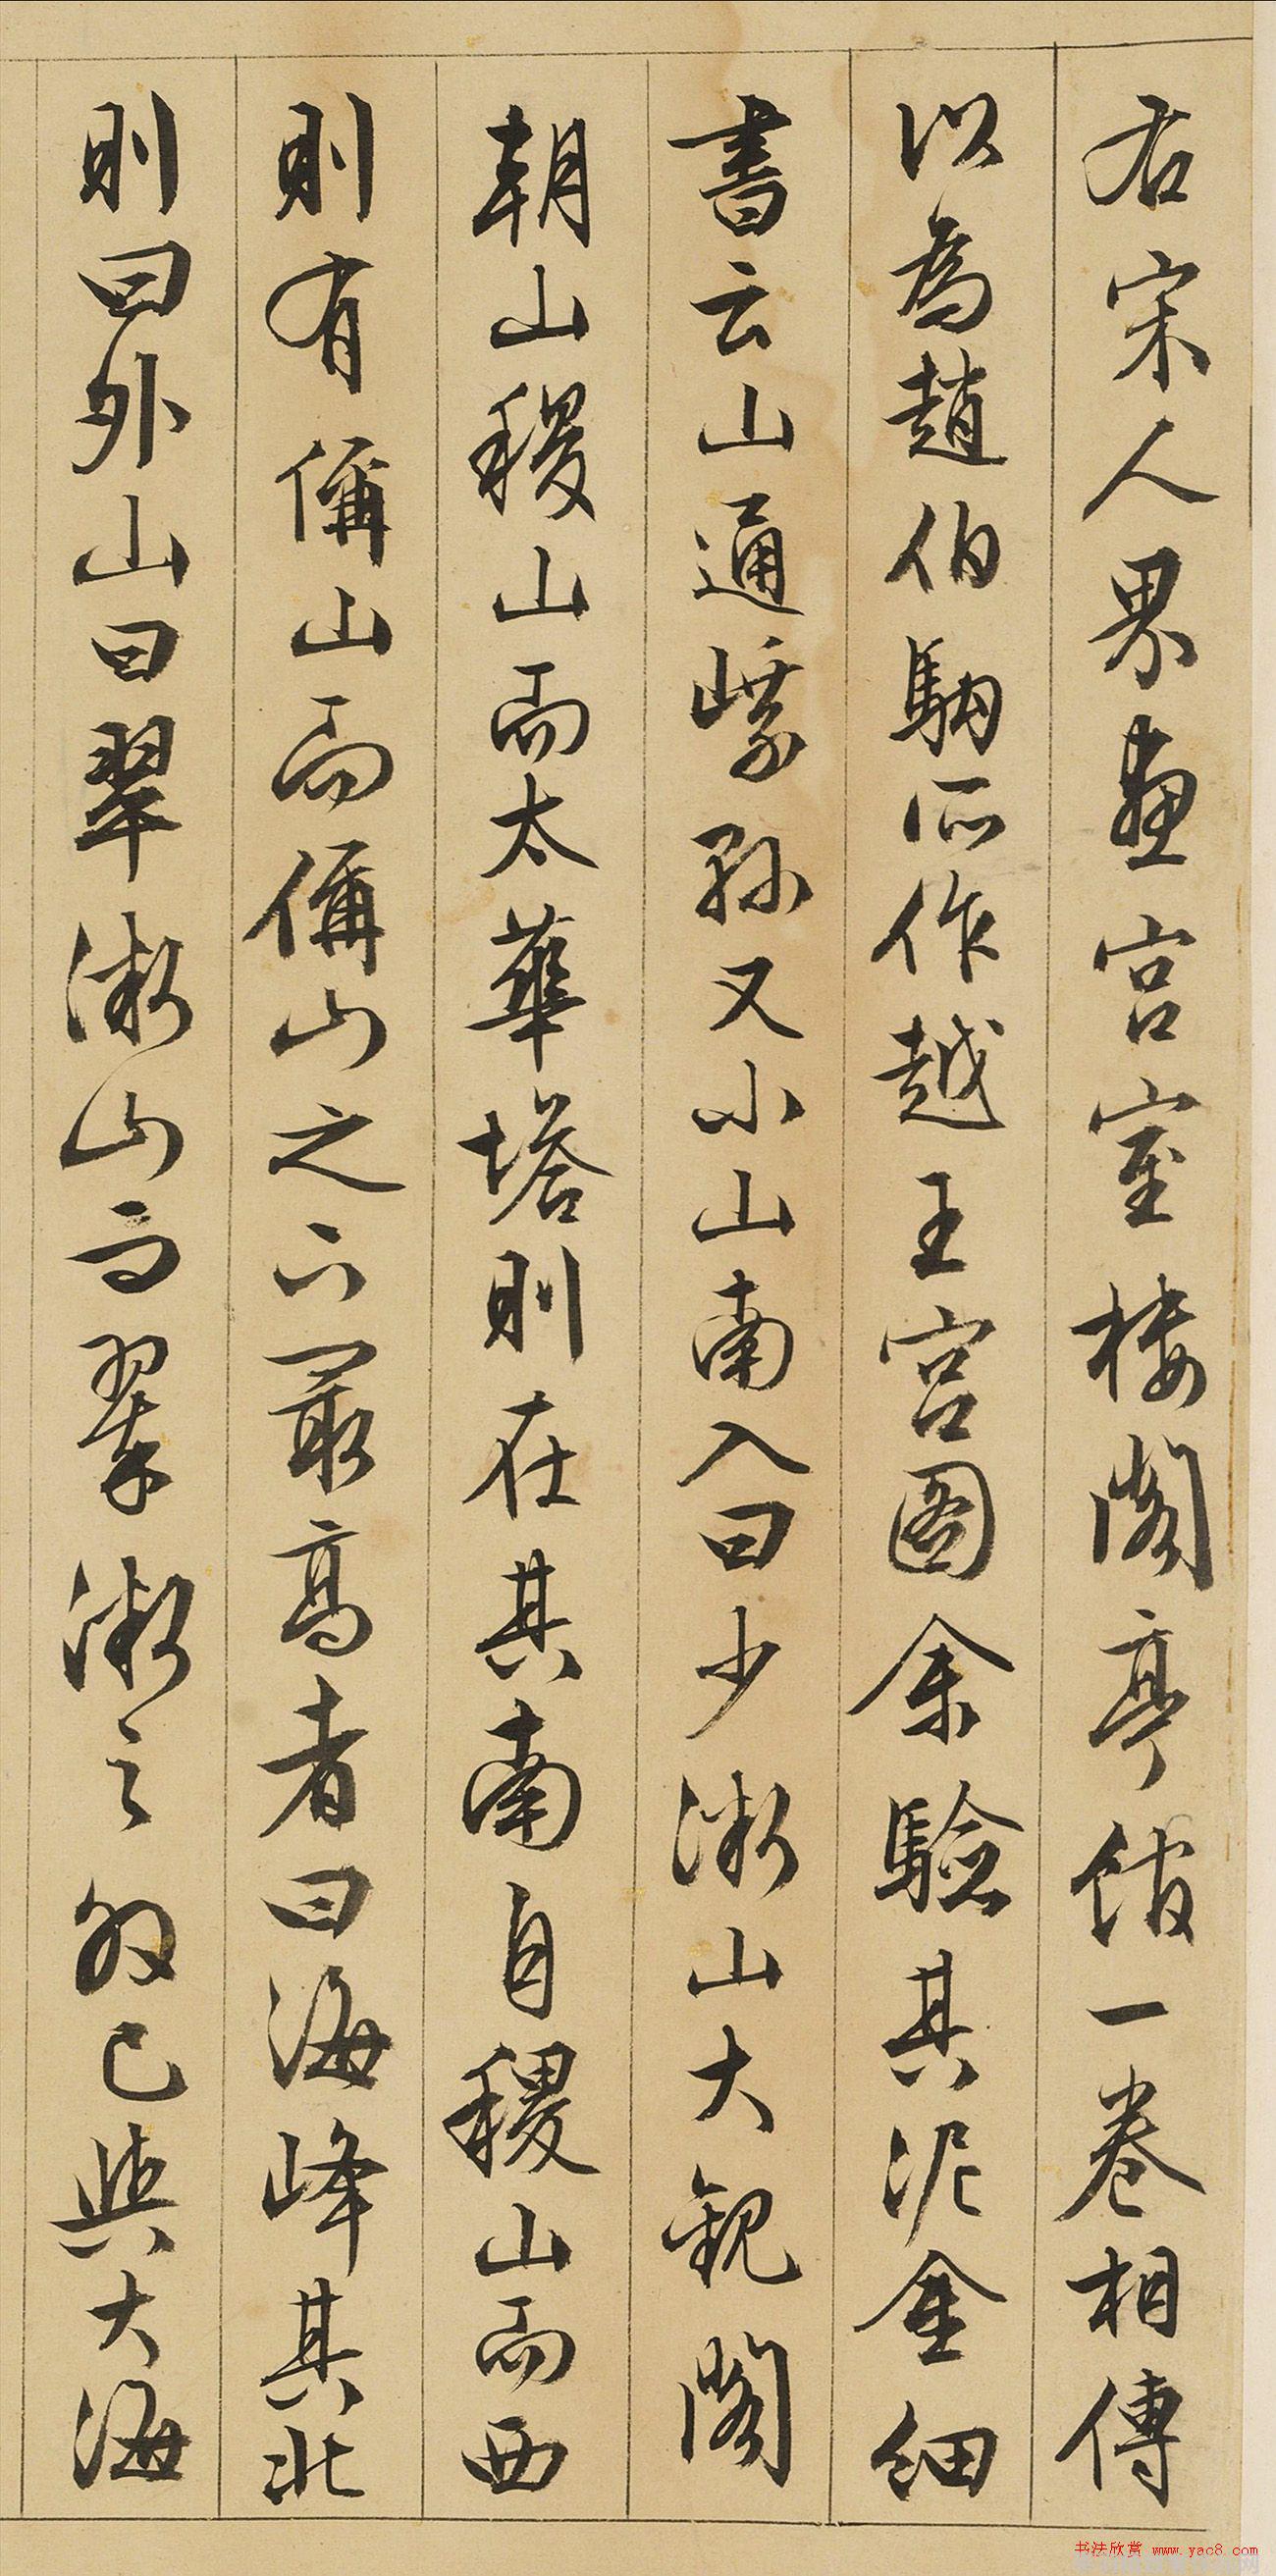 右宋人界畫宮室樓閣亭館一卷相傳
以為趙伯駒所作越王宮圖余驗其泥金細
書云山通嶀孫又小山南入曰少微山大觀閣
朝山稷山而太華塔則在其南自稷山而西
則有偁山而偁山之下最高者曰海峰其北
則曰外山曰翠微山山而翠微之外已與大海
书法欣赏 www.yac8.com